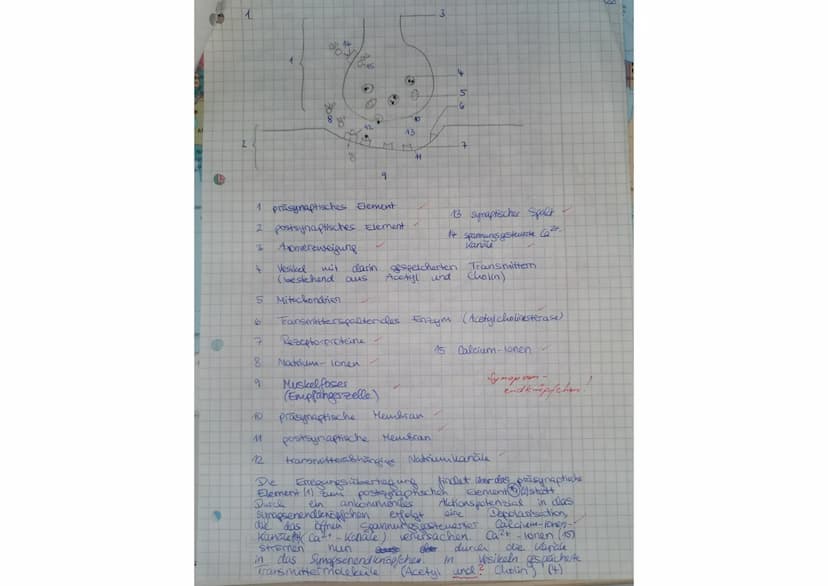 1.
3
1
14
15
4
5
6
8
12
10
13
2
7
11
9
1 präsynaptisches Element
13 synaptischer Spalt
2 postsynaptisches Element
14 spannungsgesteuerte Ca²⁺-
Kanäle
3 Axonverzweigung
4 Vesikel mit darin gespeicherten Transmittern
(bestehend aus Acetyl und Cholin)
5 Mitochondrien
6 Transmitterspaltendes Enzym (Acetylcholinesterase)
7 Rezeptorproteine
15 Calcium-Ionen
8 Natrium-Ionen
9 Muskelfaser
(Empfängerzelle)
Synapsen-
endknöpfchen!
10 präsynaptische Membran
11 postsynaptische Membran
12 transmitterabhängige Natriumkanäle
Die Erregungsübertragung findet über das präsynaptische
Element (1) zum postsynaptischen Element (2) statt
Durch ein ankommendes Aktionspotenzial in das
Synapsenendknöpfchen erfolgt eine Depolarisation,
die das öffnen spannungsgesteuerter Calcium-Ionen-
Kanäle (Ca²⁺-Kanäle) verursachen. Ca²⁺-Ionen (15)
strömen nun durch die Kanäle
in das Synapsenendknöpfchen. In Vesikeln gespeicherte
Transmittermoleküle (Acetyl und ? Cholin) (4)